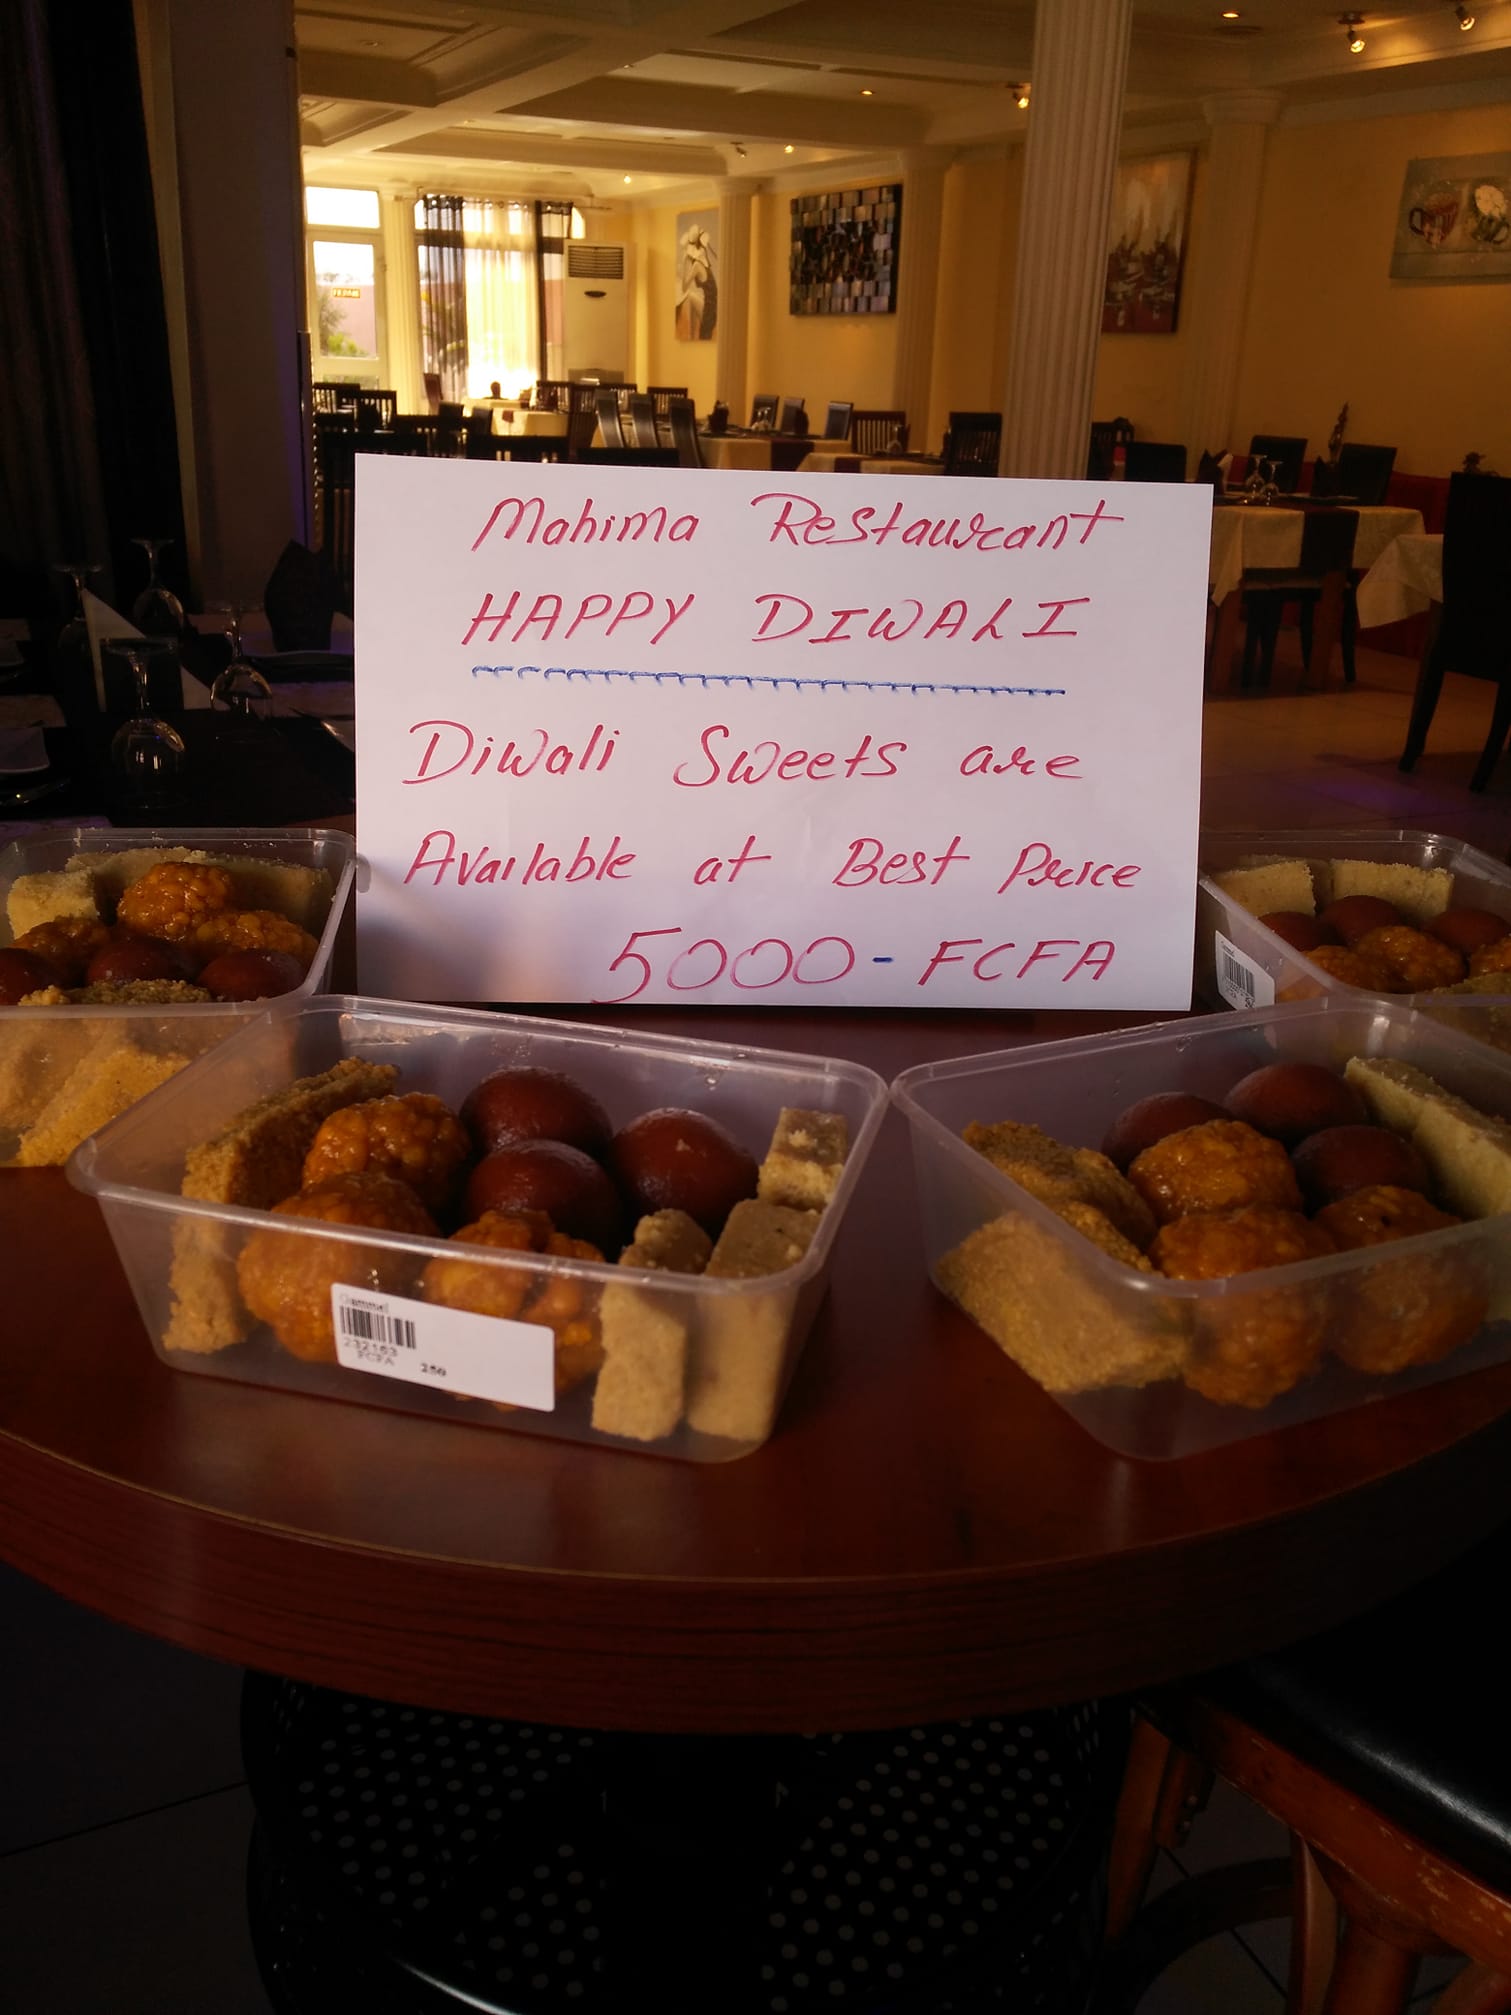 Mahima Restaurant
HAPPY DIWALI
Diwali Sweets are
Available at Best Price
5000-FCFA
232163
FCFA 250